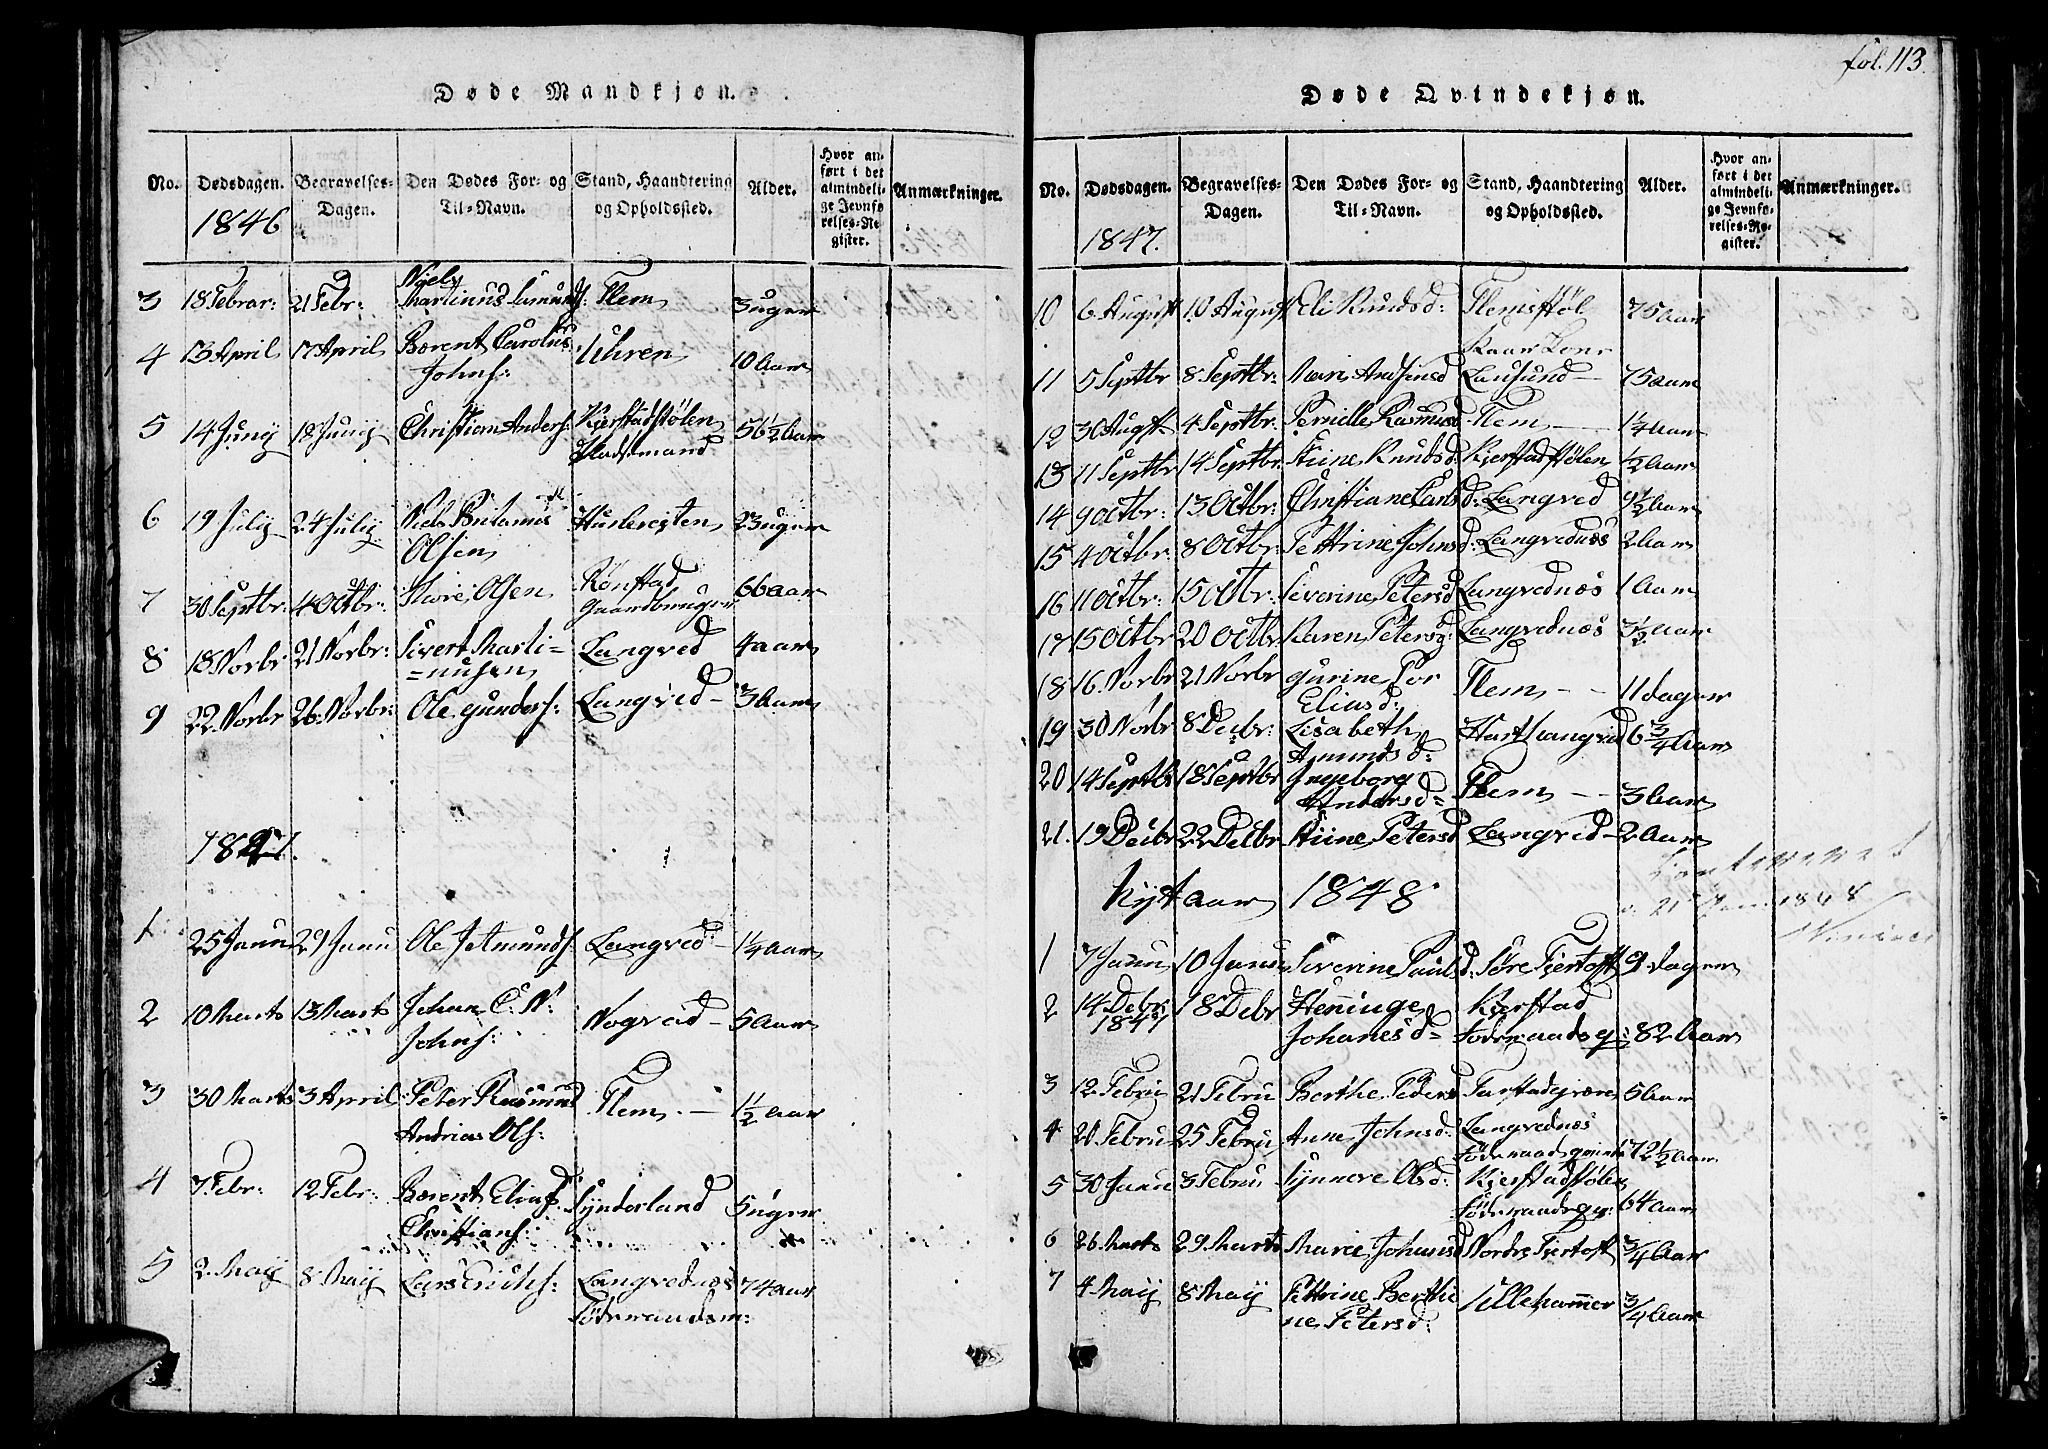 Døde Mandkjøn.
No. Dødsdagen. Begravelses-Dagen. Den Dødes For- og Til-Navn. Stand, Haandtering og Opholdssted. Alder. Hvor anført i det almindelige Jevnførelses-Register. Anmærkninger.
1846
3 18 Febrar: 21 Febr: Niels Martinus Amunds: Flem 3 uger
4 13 April 17 April Bærent Carolus Johns: Uhren 10 Aar
5 14 Juny 18 Juny Christian Anders: Kjerstadstølen Pladsmand 56½ Aar
6 19 July 24 July Niels Olsen 23 uger
7 30 Septbr: 4 Octbr: Thore Olsen Rønstad Gaardbruger 66 aar
8 18 Norbr 21 Norbr: Sivert Marti=
=nusen Langved 4 aar
9 22 Norbr 26 Norbr: Ole Gunders: Langved 3 Aar
1847.
1 25 Janu 29 Janu Ole Jetmunds: Langved 1¼ Aar
2 10 Marts 13 Marts Johan C: N: Johns: Nogved 5 Aar
3 30 Marts 3 April Peter Rasmus Andrias Ols: Flem 1½ Aar
4 7 Febr: 12 Febr: Bærent Elias Christians: Synderland 5 uger
5 2 May 8 May Lars Langvednæs Föderaadsm: 74 aar
föl. 113.
Døde Qvindekjøn.
No. Dødsdagen. Begravelses-Dagen. Den Dødes For- og Til-Navn. Stand, Haandtering og Opholdssted. Alder. Hvor anført i det almindelige Jevnførelses-Register. Anmærkninger.
1847.
10 6 August 10 August Eli Knudsd: Flemstøl 75 Aar
11 5 Septbr 8 Septbr: 75 aar
12 30 Augst 4 Septbr: Pernille Rasmusd Flem 1¼ Aar
13 11 Septbr 14 Septbr: Stine Knudsd: Kjerstadstølen ½ Aar
14 9 Octbr: 13 Octbr: Christiane Larsd: Langved 9½ Aar
15 4 Octbr: 8 Octbr: Pettrine Johnsd: Langvednæs 2 Aar
16 11 Octbr: 15 Octbr: Severine Petersd Langvednæs 1 Aar
17 15 Octbr 20 Octbr Karen Petersd: Langvednæs 3½ Aar
18 16 Norbr 21 Norbr Gurine Por Eliasd: Flem 11 dager
19 30 Norbr 8 Debr: Lisabeth Amundsd: 6¾ Aar
20 14 Septbr 18 Septbr Ingeborg Andersd= Flem 3 Aar
21. 19 Debr 22 Debr Stine Petersd Langved 2 Aar
Nyt aar 1848
1848
1 7 Janu 10 Janu Severine Paulsd: Søre Fjertoft 9 dager
2 14 Debr: 1847 18 Debr Henninge Johanesd= Kjerstad Föderaadsq: 82 Aar
3 12 Febru 21 Febru Berthe Peders 5 Aar
4 20 Febru 25 Febru Anne Johnsd: Langvednæs 72½ Aar
5 30 Janu 3 Febru Synnere Olsd: Kjerstadstølen 64 aar
6 26 Marts 29 Marts Marie Nordre Fjertoft ¾ Aar
7 4 May 8 May Pettrine Berthe
ne Petersd: Lillehammer ¾ Aar